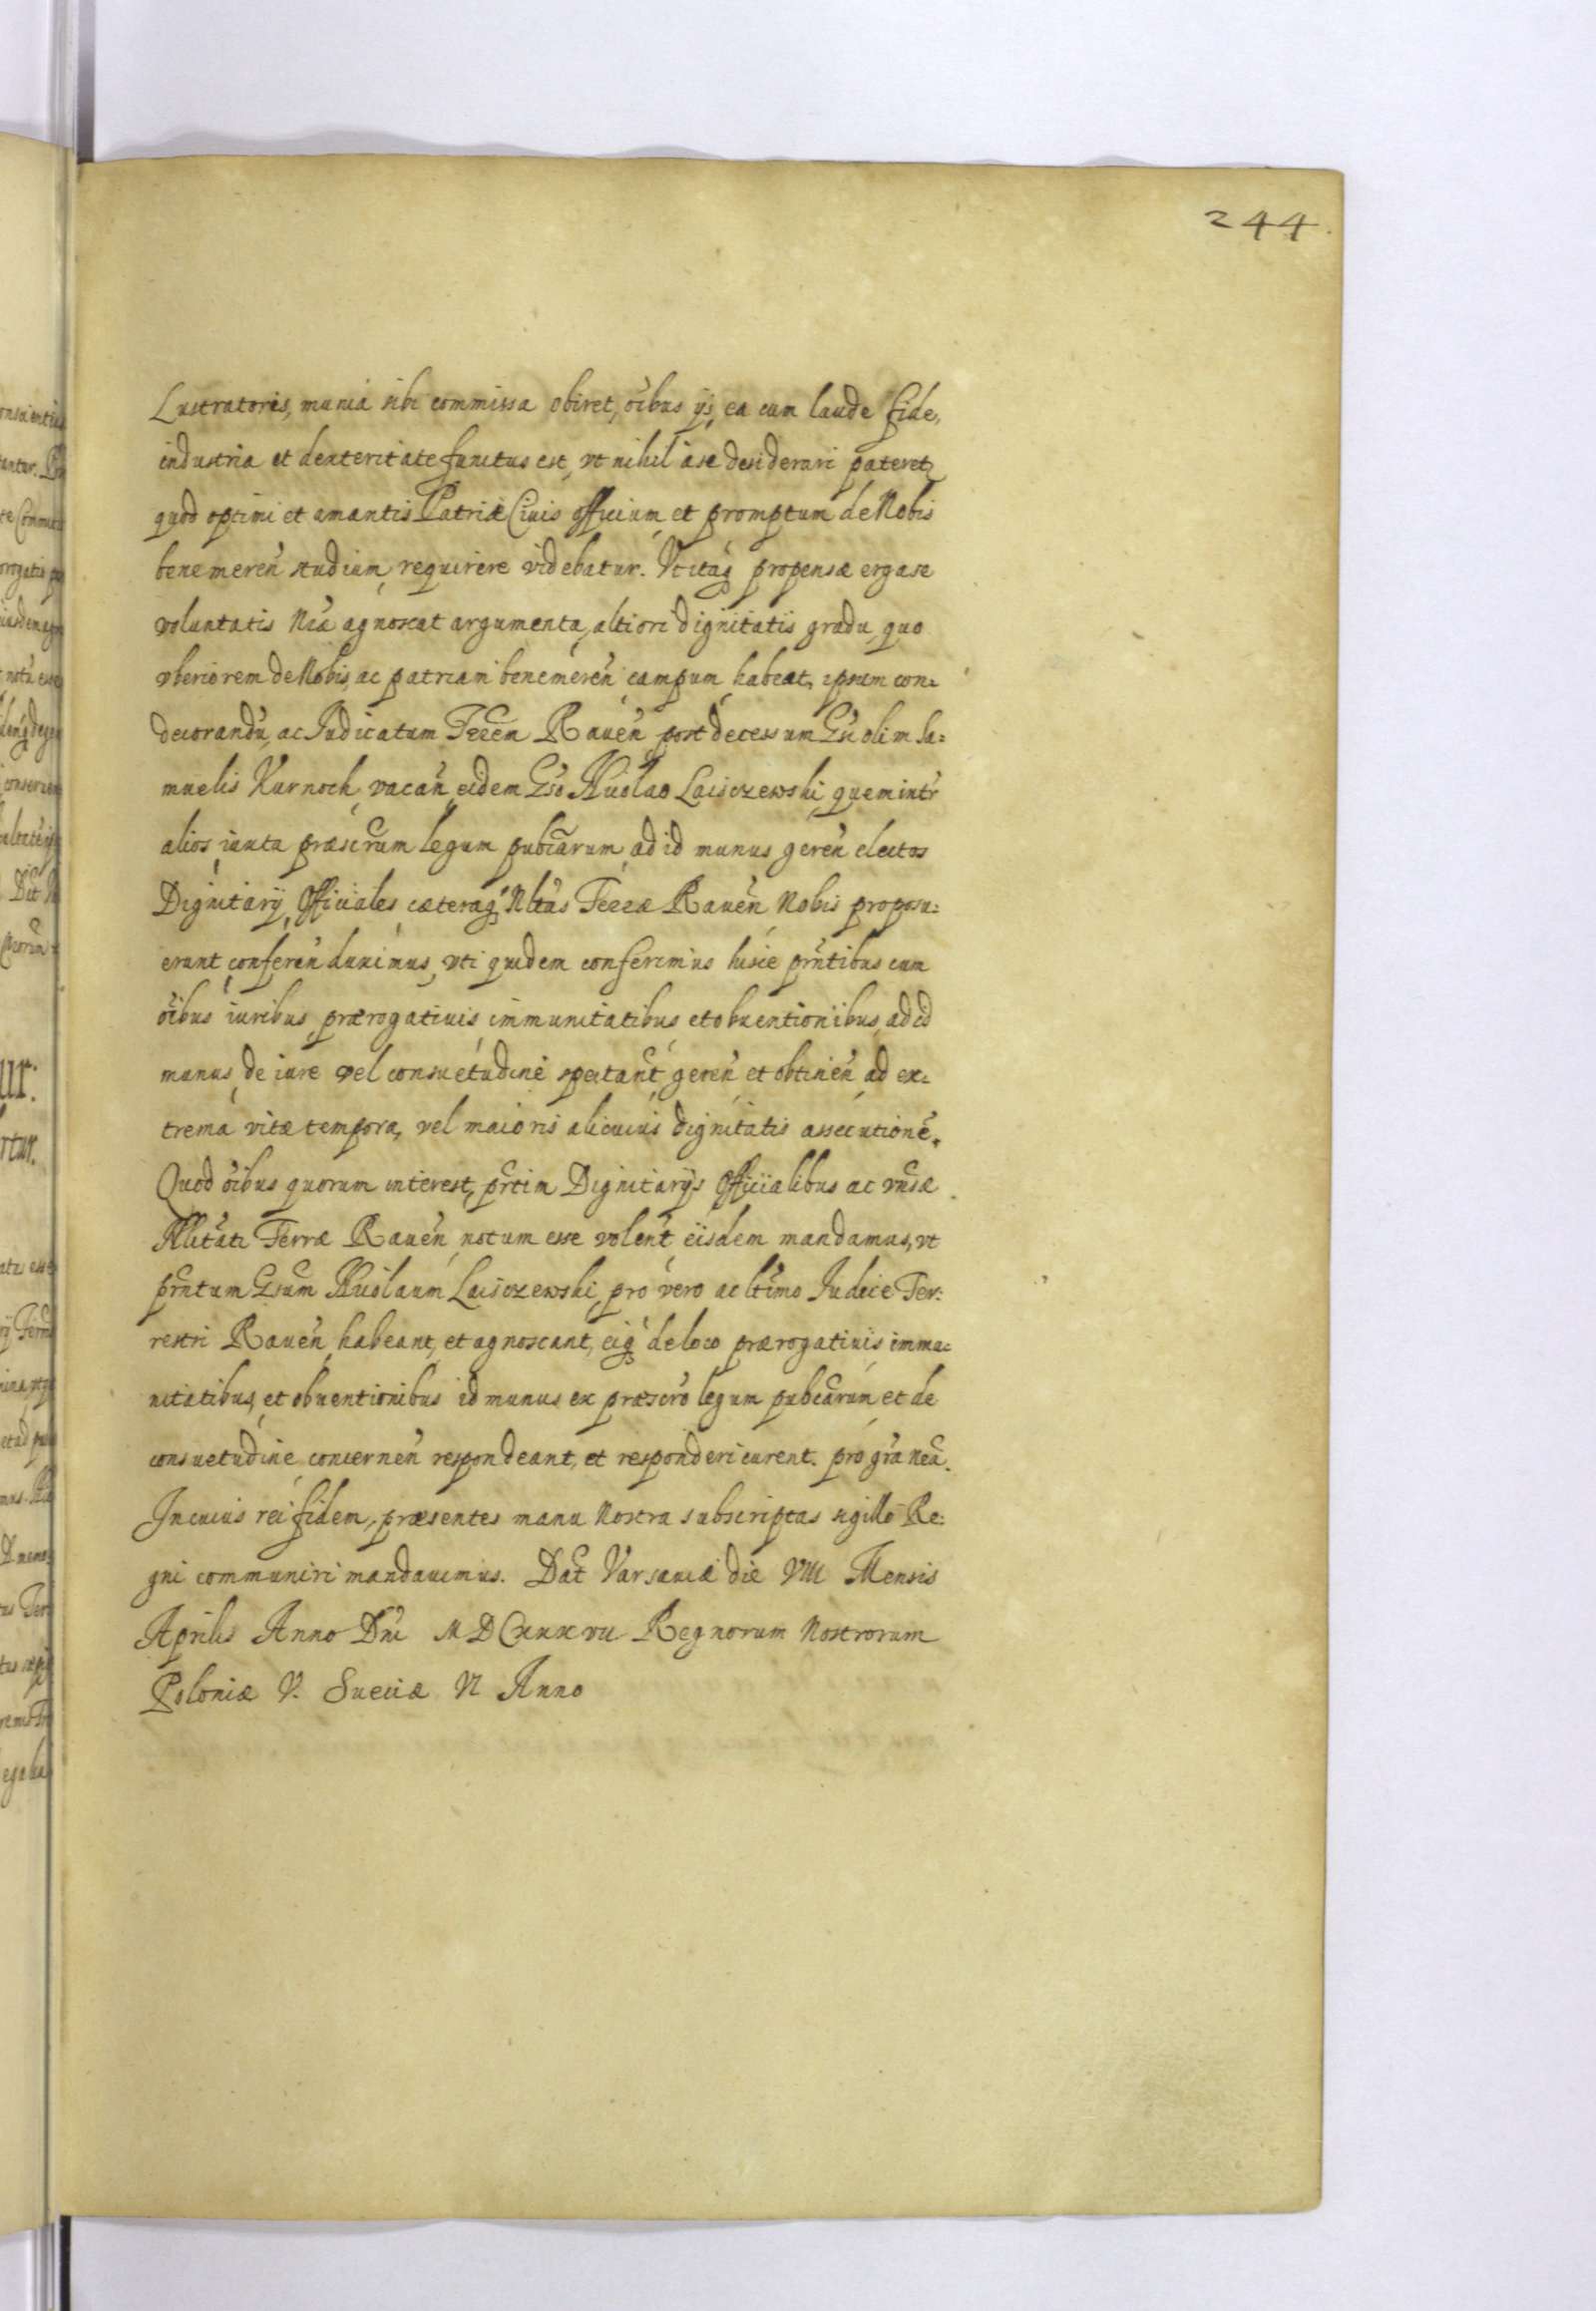 244.
Lustratoris, munia sibi commissa obiret, oibus ijs, ea cum laude fide,
industria et dexteritate functus est, vt nihil a se desiderari pateret,
quod optimi et amantis Patriæ Ciuis officium et promptum de Nobis
bene meren̄ studium requirere videbatur. Vt itaq propensæ erga se
voluntatis Nr̄a agnoscat argumenta, altiori dignitatis gradu, quo
vberiorem de Nobis, ac patriam benemeren̄ campum habeat, ipsum con:
decorandū, ac Iudicatum Terren̄ Rauen̄ post decessum Gsi olim Sa:
muelis Karnock, vacan̄ eidem Gso Nicolao Laisczewski, quem intr̄
alios, iuxta præscrum legum pubcarum, ad id munus geren̄ electos
Dignitarij Officiales cæteraq Nltas Terræ Rauen̄ Nobis proposu:
erant, conferen̄ duximus, vti quidem conferimus hisce pr̄ntibus cum
oibus iuribus prærogatiuis, immunitatibus et obuentionibus, ad id
munus de iure vel consuetudine spectant̄ geren̄ et obtinen̄ ad ex:
trema vitæ tempora, vel maioris alicuius dignitatis assecutionē.
Quod oibus quorum interest, pr̄tim Dignitarijs Officialibus ac vnisæ
Nlitati Terræ Rauen̄ notum esse volent̄ eisdem mandamus, vt
pr̄ntum Gsum Nicolaum Laisczewski pro vero ac ltimo Iudice Ter:
restri Rauen̄ habeant, et agnoscant, eiq de loco prærogatiuis immu:
nitatibus, et obuentionibus id munus ex præscro legum pubcarum et de
consuetudine concernen̄ respondeant, et responderi curent. pro gr̄a nr̄a.
In cuius rei fidem, præsentes manu Nostra subscriptas sigillo Re:
gni communiri mandauimus. Dat̄ Varsauiæ die VIII Mensis
Aprilis Anno Dn̄i MDCxxxvii Regnorum Nostrorum
Poloniæ V. Sueciæ VI Anno